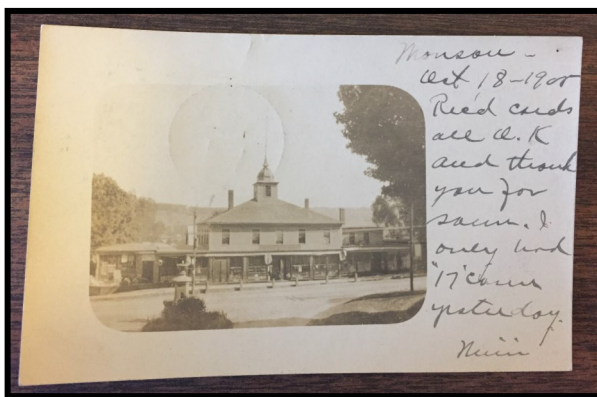 Monson -
Oct 18-1905
Rec'd cards
all O.K
and thank
you for
same. I
only had
"17" come
yesterday.